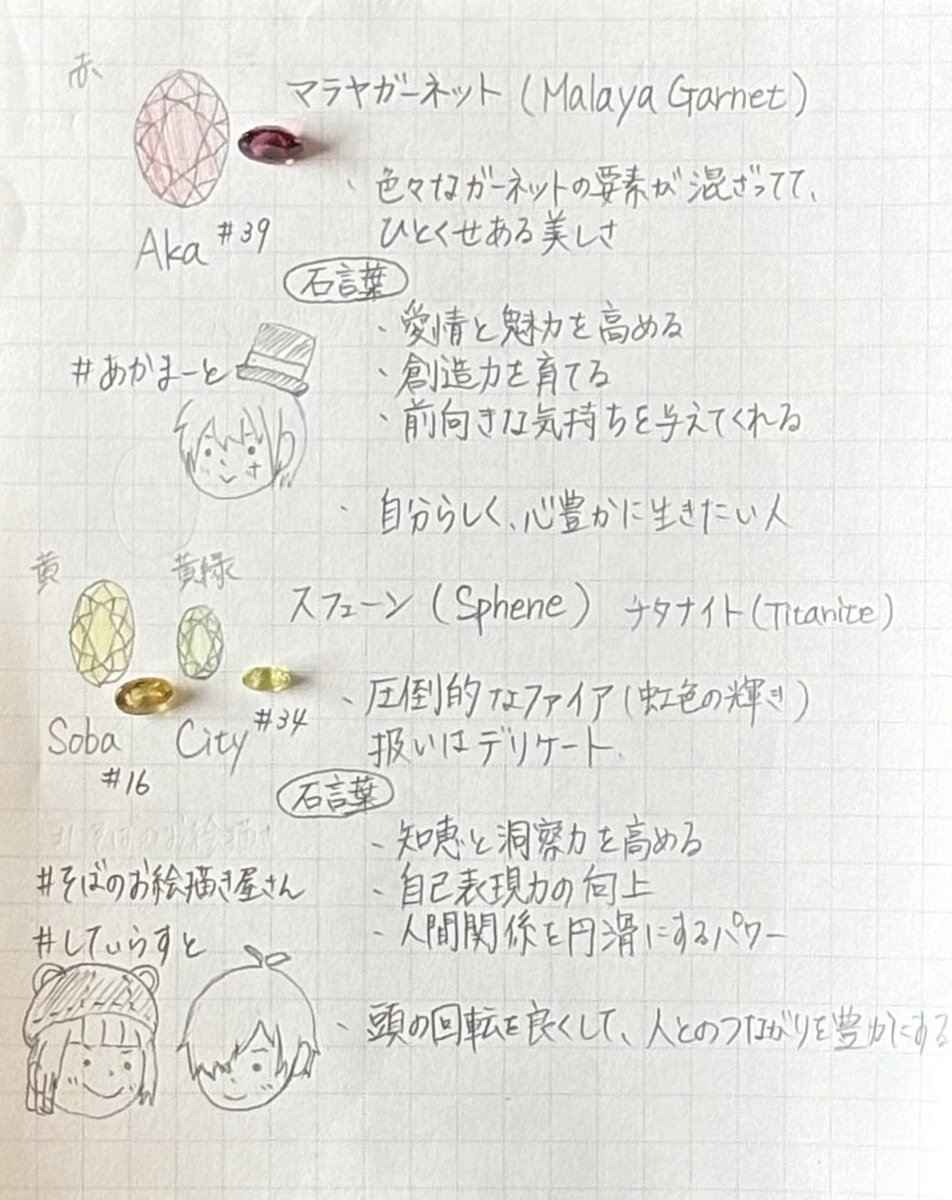 赤
マラヤガーネット (Malaya Garnet)
、色々なガーネットの要素が混ざってて、
ひとくせある美しさ
Aka #39
石言葉
・愛情と魅力を高める
#あかまーと
・創造力を育てる
・前向きな気持ちを与えてくれる
、自分らしく、心豊かに生きたい人
黄
黄緑
スフェーン (Sphene) チタナイト (Titanite)
、圧倒的なファイア (虹色の輝き)
扱いはデリケート、
Soba #16
City #34
石言葉
・知恵と洞察力を高める
#そばのお絵描き屋さん
・自己表現力の向上
#してぃらすと
・人間関係を円滑にするパワー
、頭の回転を良くして、人とのつながりを豊かにする